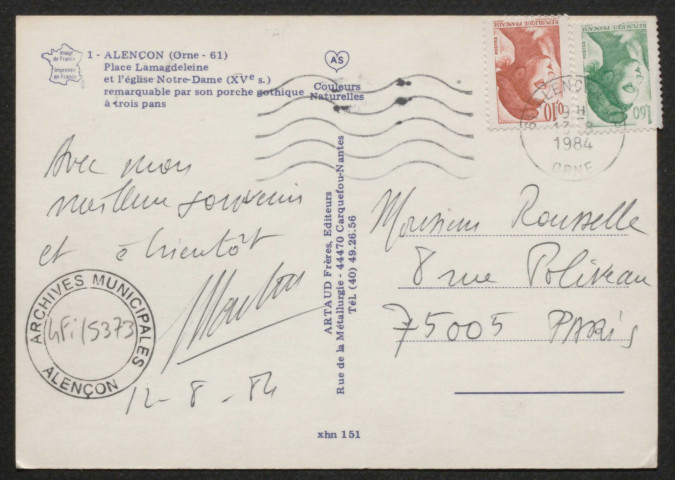 1 - ALENÇON (Orne - 61)
Place Lamagdeleine
et l'église Notre-Dame (XVe s.)
remarquable par son porche gothique
à trois pans
Image de France
Imprimée en France
AS
Couleurs
Naturelles
0,10
1,60
1984
ORNE
Avec mon
meilleur souvenir
et à bientôt
12-8-84
ARCHIVES MUNICIPALES
4Fi/5373
ALENÇON
ARTAUD Frères, Editeurs
Rue de la Métallurgie - 44470 Carquefou-Nantes
Tél. (40) 49.26.56
Monsieur Rousselle
8 rue Poliveau
75005 PARIS
xhn 151